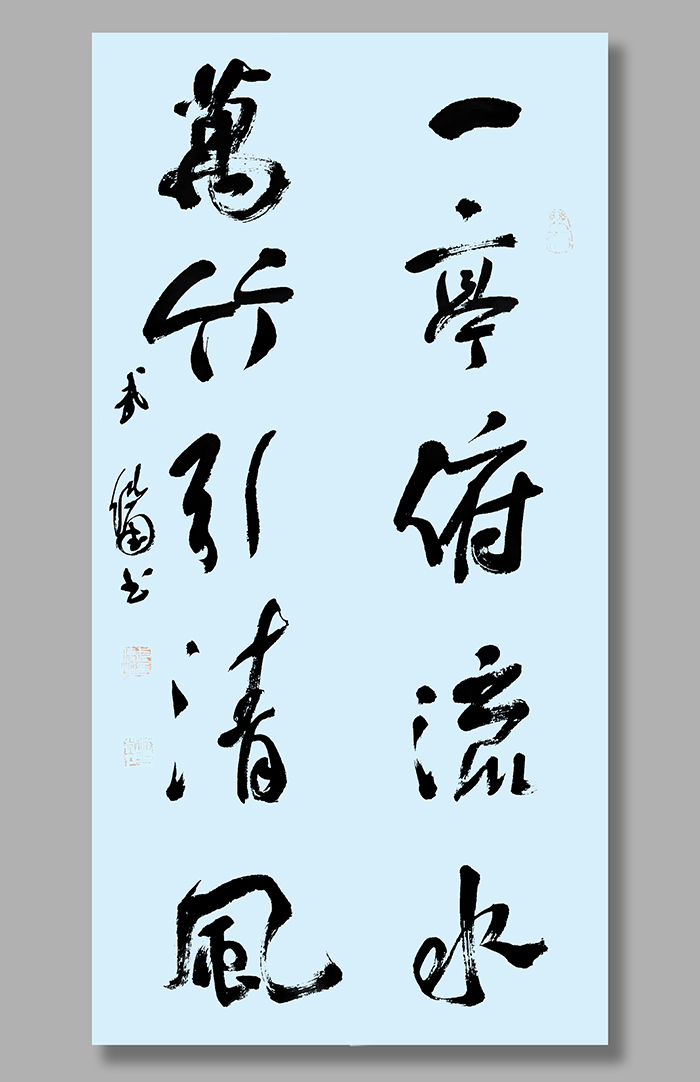 一亭俯流水
萬竹引清風
武 書